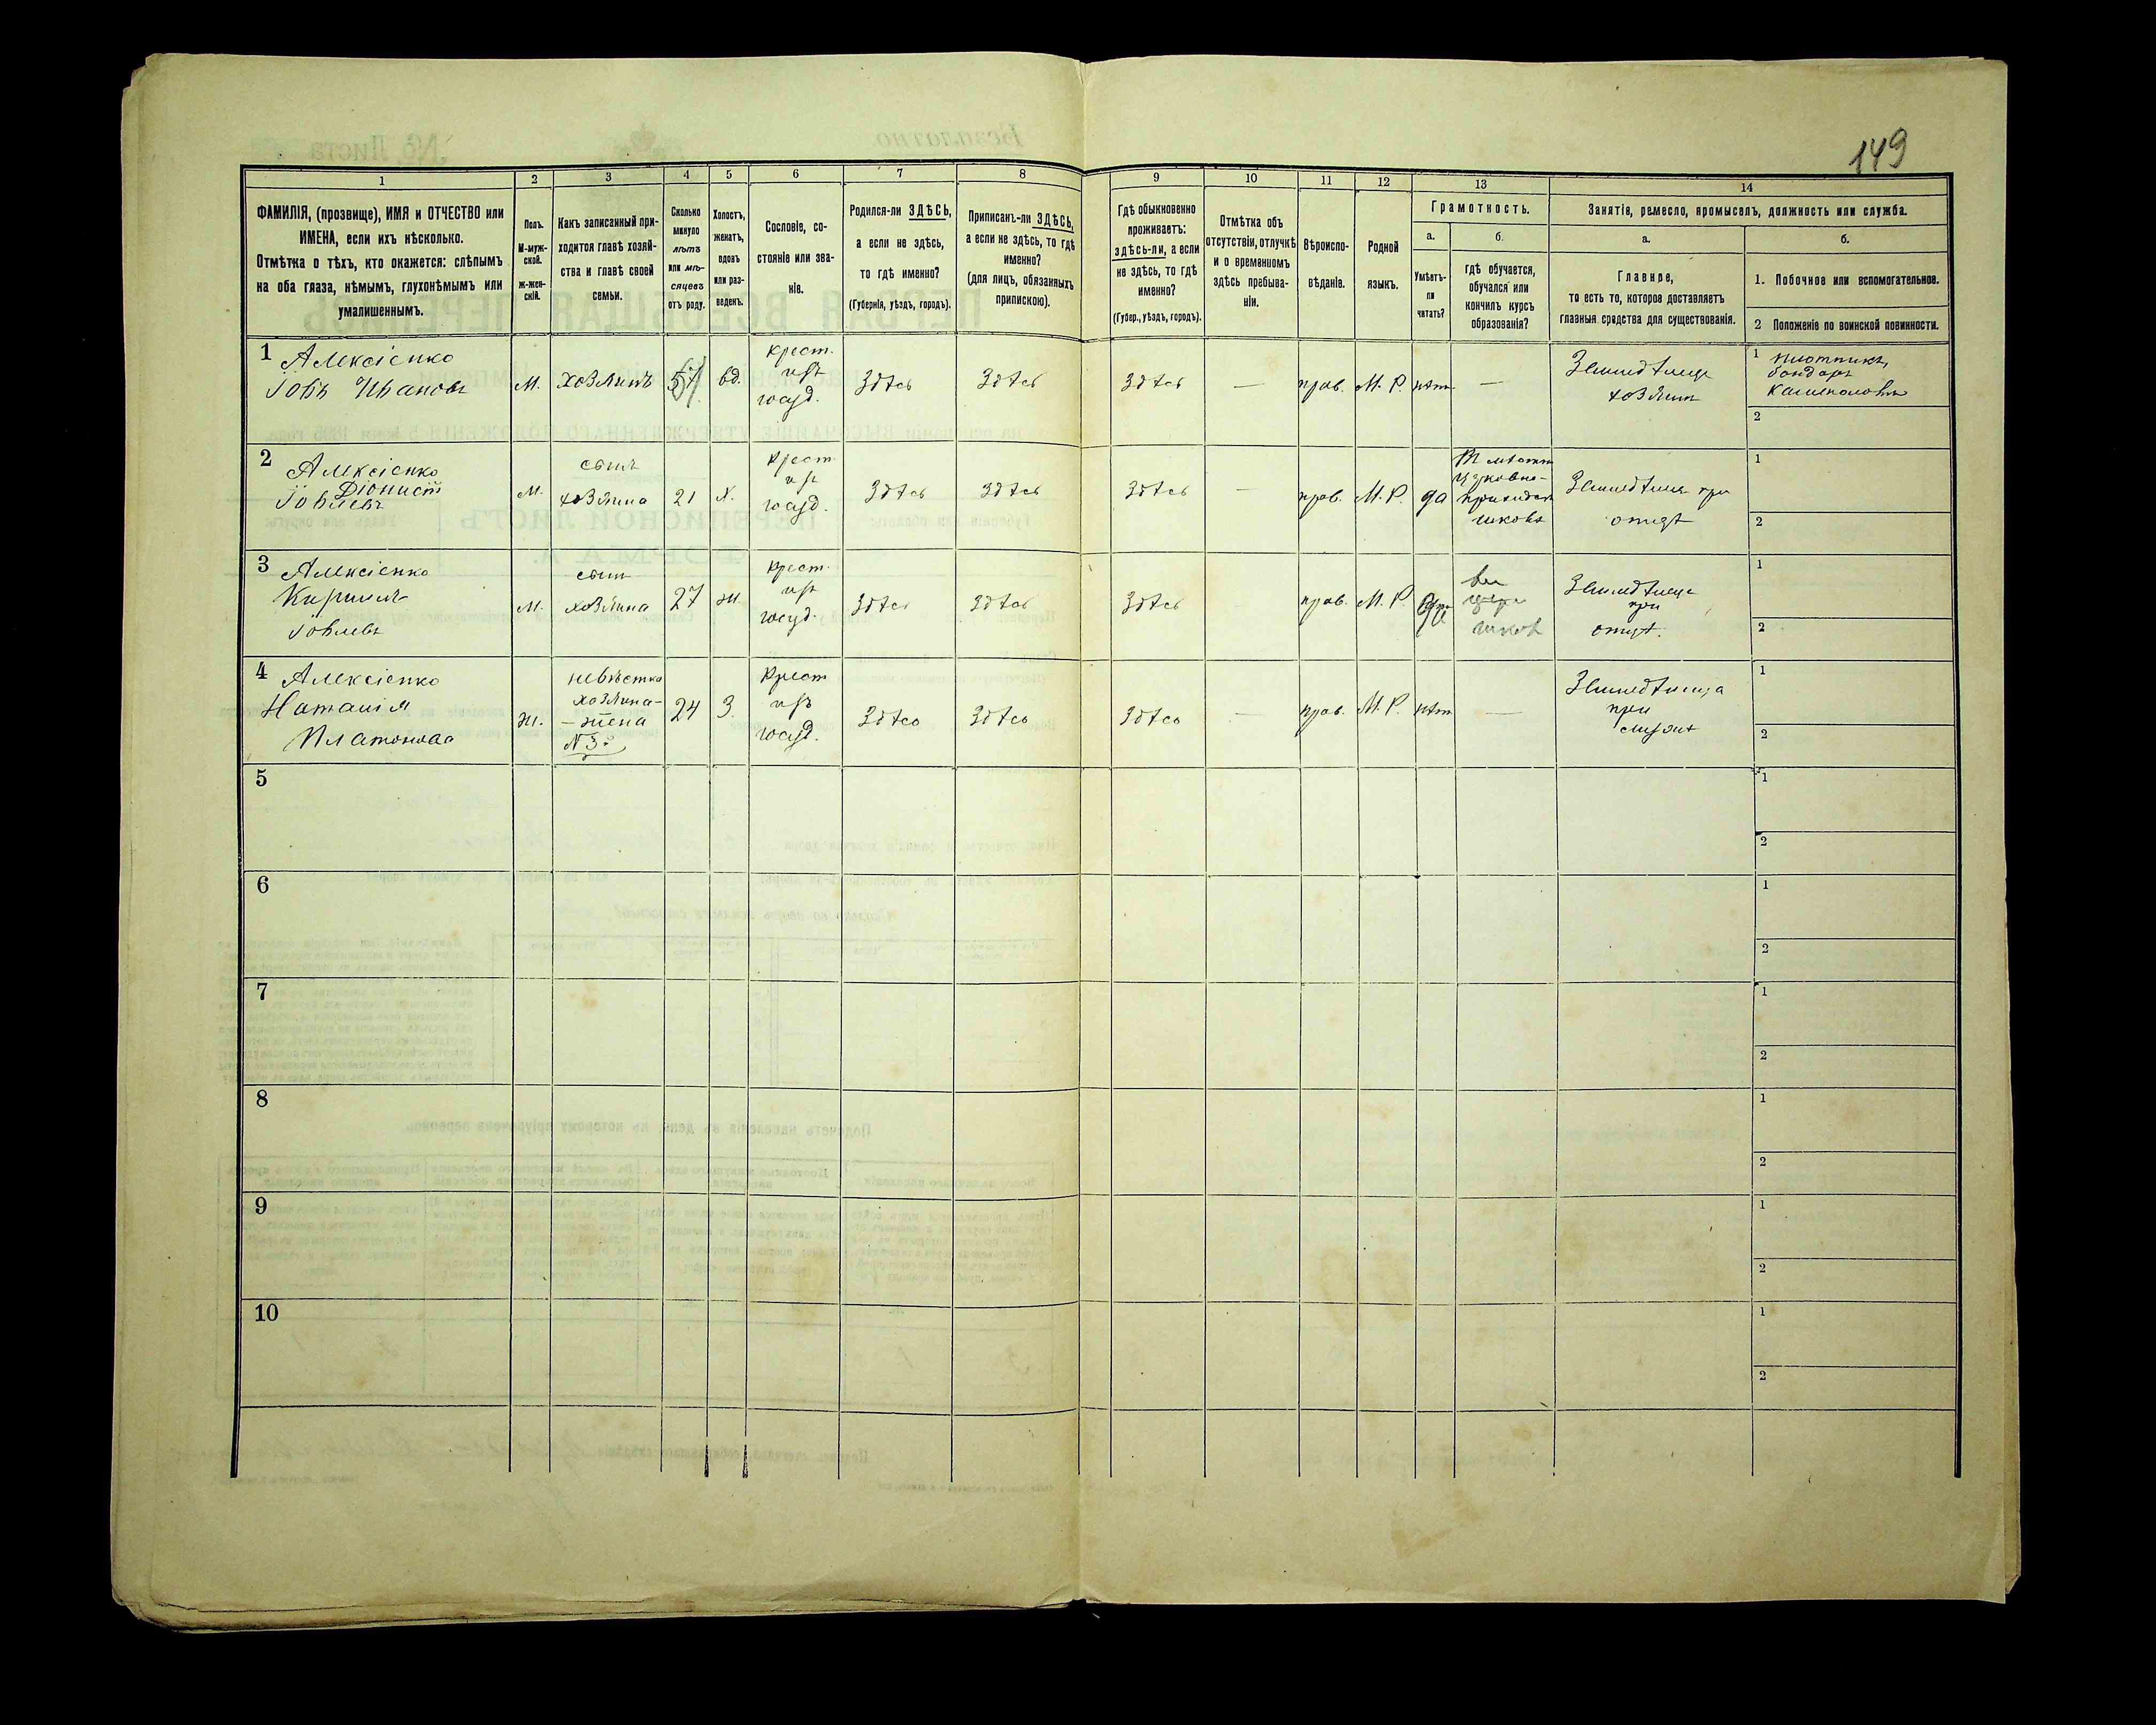 149
1
2
3
4
5
6
7
8
9
10
11
12
13
14
ФАМИЛІЯ, (прозвище), ИМЯ и ОТЧЕСТВО или
ИМЕНА, если ихъ нѣсколько.
Отмѣтка о тѣхъ, кто окажется: слѣпымъ
на оба глаза, нѣмымъ, глухонѣмымъ или
умалишеннымъ.
Полъ.
М-муж-
ской.
ж-жен-
скій.
Какъ записанный при-
ходится главѣ хозяй-
ства и главѣ своей
семьи.
Сколько
минуло
лѣтъ
или мѣ-
сяцевъ
отъ роду.
Холостъ,
женатъ,
вдовъ
или раз-
веденъ.
Сословіе, со-
стояніе или зва-
ніе.
Родился-ли ЗДѢСЬ,
а если не здѣсь,
то гдѣ именно?
(Губернія, уѣздъ, городъ).
Приписанъ-ли ЗДѢСЬ,
а если не здѣсь, то гдѣ
именно?
(для лицъ, обязанныхъ
припискою).
Гдѣ обыкновенно
проживаетъ:
здѣсь-ли, а если
не здѣсь, то гдѣ
именно?
(Губер., уѣздъ, городъ).
Отмѣтка объ
отсутствіи, отлучкѣ
и о временномъ
здѣсь пребыва-
ніи.
Вѣроиспо-
вѣданіе.
Родной
языкъ.
Грамотность.
а.
Умѣетъ-
ли
читать?
б.
гдѣ обучается,
обучался или
кончилъ курсъ
образованія?
Занятіе, ремесло, промыселъ, должность или служба.
а.
Главное,
то есть то, которое доставляетъ
главныя средства для существованія.
б.
1. Побочное или вспомогательное.
2 Положеніе по воинской повинности.
1
Алексіенко
Іовъ Ивановъ
М.
хозяинъ
вд.
крест.
изъ
госуд.
Здѣсь
Здѣсь
Здѣсь
—
прав.
М. Р.
нѣт
—
Земледѣлецъ
хозяинъ
1 плотникъ,
бондарь
2
2
Алексіенко
Діонисій
Іовлевъ
М.
сынъ
хозяина
21
х.
крест.
изъ
госуд.
Здѣсь
Здѣсь
Здѣсь
—
прав.
М. Р.
да
церковно-
приходск
школѣ
Земледѣлецъ при
отцѣ
1
2
3
Алексіенко
Кириллъ
Іовлевъ
М.
сынъ
хозяина
27
ж.
крест.
изъ
госуд.
Здѣсь
Здѣсь
Здѣсь
прав.
М. Р.
да
школѣ
Земледѣлецъ
при
отцѣ.
1
2
4
Алексіенко
Наталія
Платонова
ж.
невѣстка
хозяина-
- жена
N 3.
24
З.
крест
изъ
госуд.
Здѣсь
Здѣсь
Здѣсь
—
прав.
М. Р.
нѣт
—
Земледѣлица
при
мужѣ
1
2
5
1
2
6
1
2
7
1
2
8
1
2
9
1
2
10
1
2